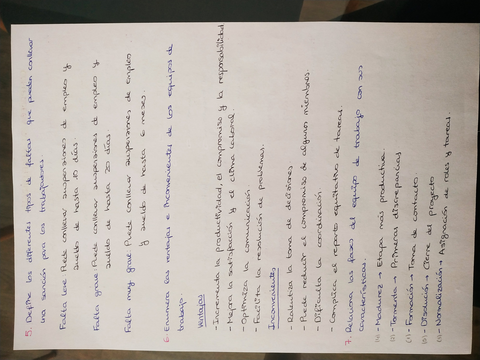 5. Define los diferentes tipos de faltas que pueden conllevar
una sanción para los trabajadores.
Falta leve Puede conllevar suspensiones de empleo y
sueldo de hasta 10 días
Falta grave Puede conllevar suspensiones de empleo y
sueldo de hasta 20 días
Falta muy grave Puede conllevar suspensiones de empleo
y sueldo de hasta 6 meses.
6. Enumera las ventajas e inconvenientes de los equipos de
trabajo.
Ventajas
- Incrementa la productividad, el compromiso y la responsabilidad
- Mejora la satisfacción y el clima laboral.
- Optimiza la comunicación
- Facilita la resolución de problemas.
Inconvenientes
- Ralentiza la toma de decisiones
- Puede reducir el compromiso de algunos miembros.
- Dificulta la coordinación
- Complica el reparto equitativo de tareas.
7. Relaciona las fases del equipo de trabajo con sus
características.
Madurez → Etapa más productiva
Tormenta → Primeras discrepancias
Formación → Toma de contacto.
Disolución → Cierre del proyecto
Normalización → Asignación de roles y tareas.